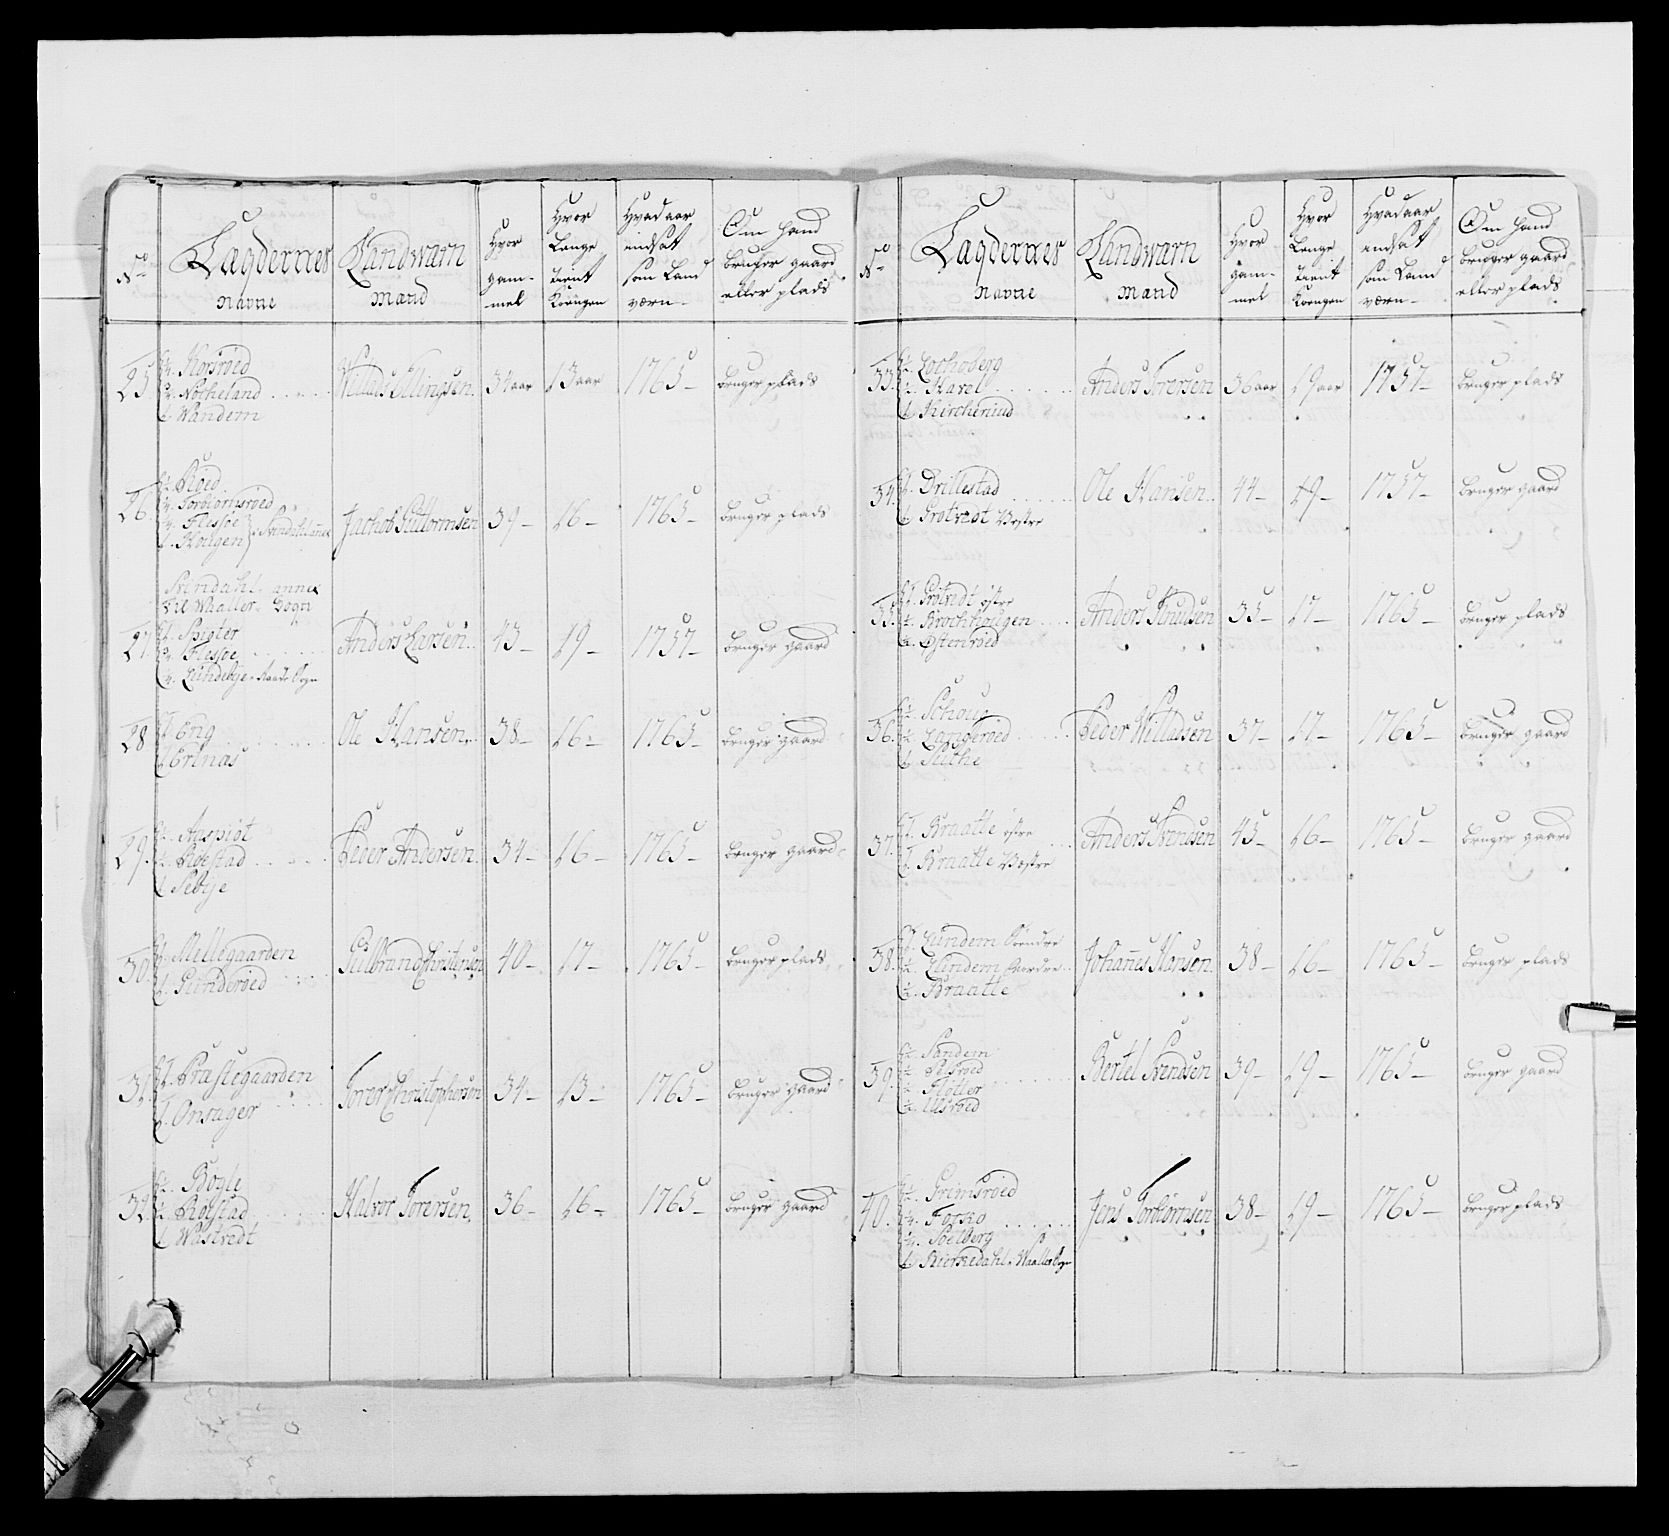 No
Lægdernes
Navne
Landwærn
Mand
Hvor
gam-
mel
Hvor
Længe
tient
Kongen
Hvad aar
indsat
som Land
værn
Om hand
bruger gaard
eller plads
25.
Korsröed
Notheland
Wandem
Willads Ellingsen
34 aar
13 aar
1765
bruger plads
26.
Röed
Torbiörnsröed
Flespe
Hougen
Jachob Guttormsen
39
16
1765
bruger plads
27.
Svindahl annex
til Whaller Sogn
Flespe
Lundebye
Anders Larsen
43
19
1757
bruger gaard
28
Eng
Ertnæs
Ole Hansen
38
16
1765
bruger gaard
29.
Aaspiöt
Röestad
Sebye
Peder Andersen
34
16
1765
bruger gaard
30.
Mellegaarden
Gunderöed
Gulbrand Christensen
40
17
1765
bruger plads
31.
Præstegaarden
Onsager
Torer Christophersen
34
13
1765
bruger gaard
32.
Böyle
Röestad
Wastvedt
Halvor Torersen
36
16
1765
bruger gaard
No
Lægdernes
Navne
Landwærn
Mand
Hvor
gam-
mel
Hvor
Længe
tient
Kongen
Hvad aar
indsat
som Land
værn
Om hand
bruger gaard
eller plads
33.
Lochoberg
Havel
Kircheruud
Anders Iversen
36 aar
19 aar
1757
bruger plads
34.
Drillestad
Grotvedt Vestre
Ole Hansen
44
19
1757
bruger gaard
35.
Grötvedt östre
Brochhougen
Östenröed
Anders Knudsen
35
17
1765
bruger plads
36.
Schoug
Langeröed
Peder Willadsen
37
17
1765
bruger gaard
37.
Braatte östre
Braatte Vestre
Anders Svendsen
45
16
1765
bruger gaard
38.
Lundem Söendre
Lundem Nordre
Braatte
Johannes Hansen
38
16
1765
bruger plads
39.
Sandem
Pilsröed
Flötter
Ulsröed
Bertel Svendsen
39
19
1765
bruger gaard
40.
Grimsröed
Foske
Soelberg
Kierkedahl Waaller Sogn
Jens Torbiörnsen
38
19
1765
bruger plads